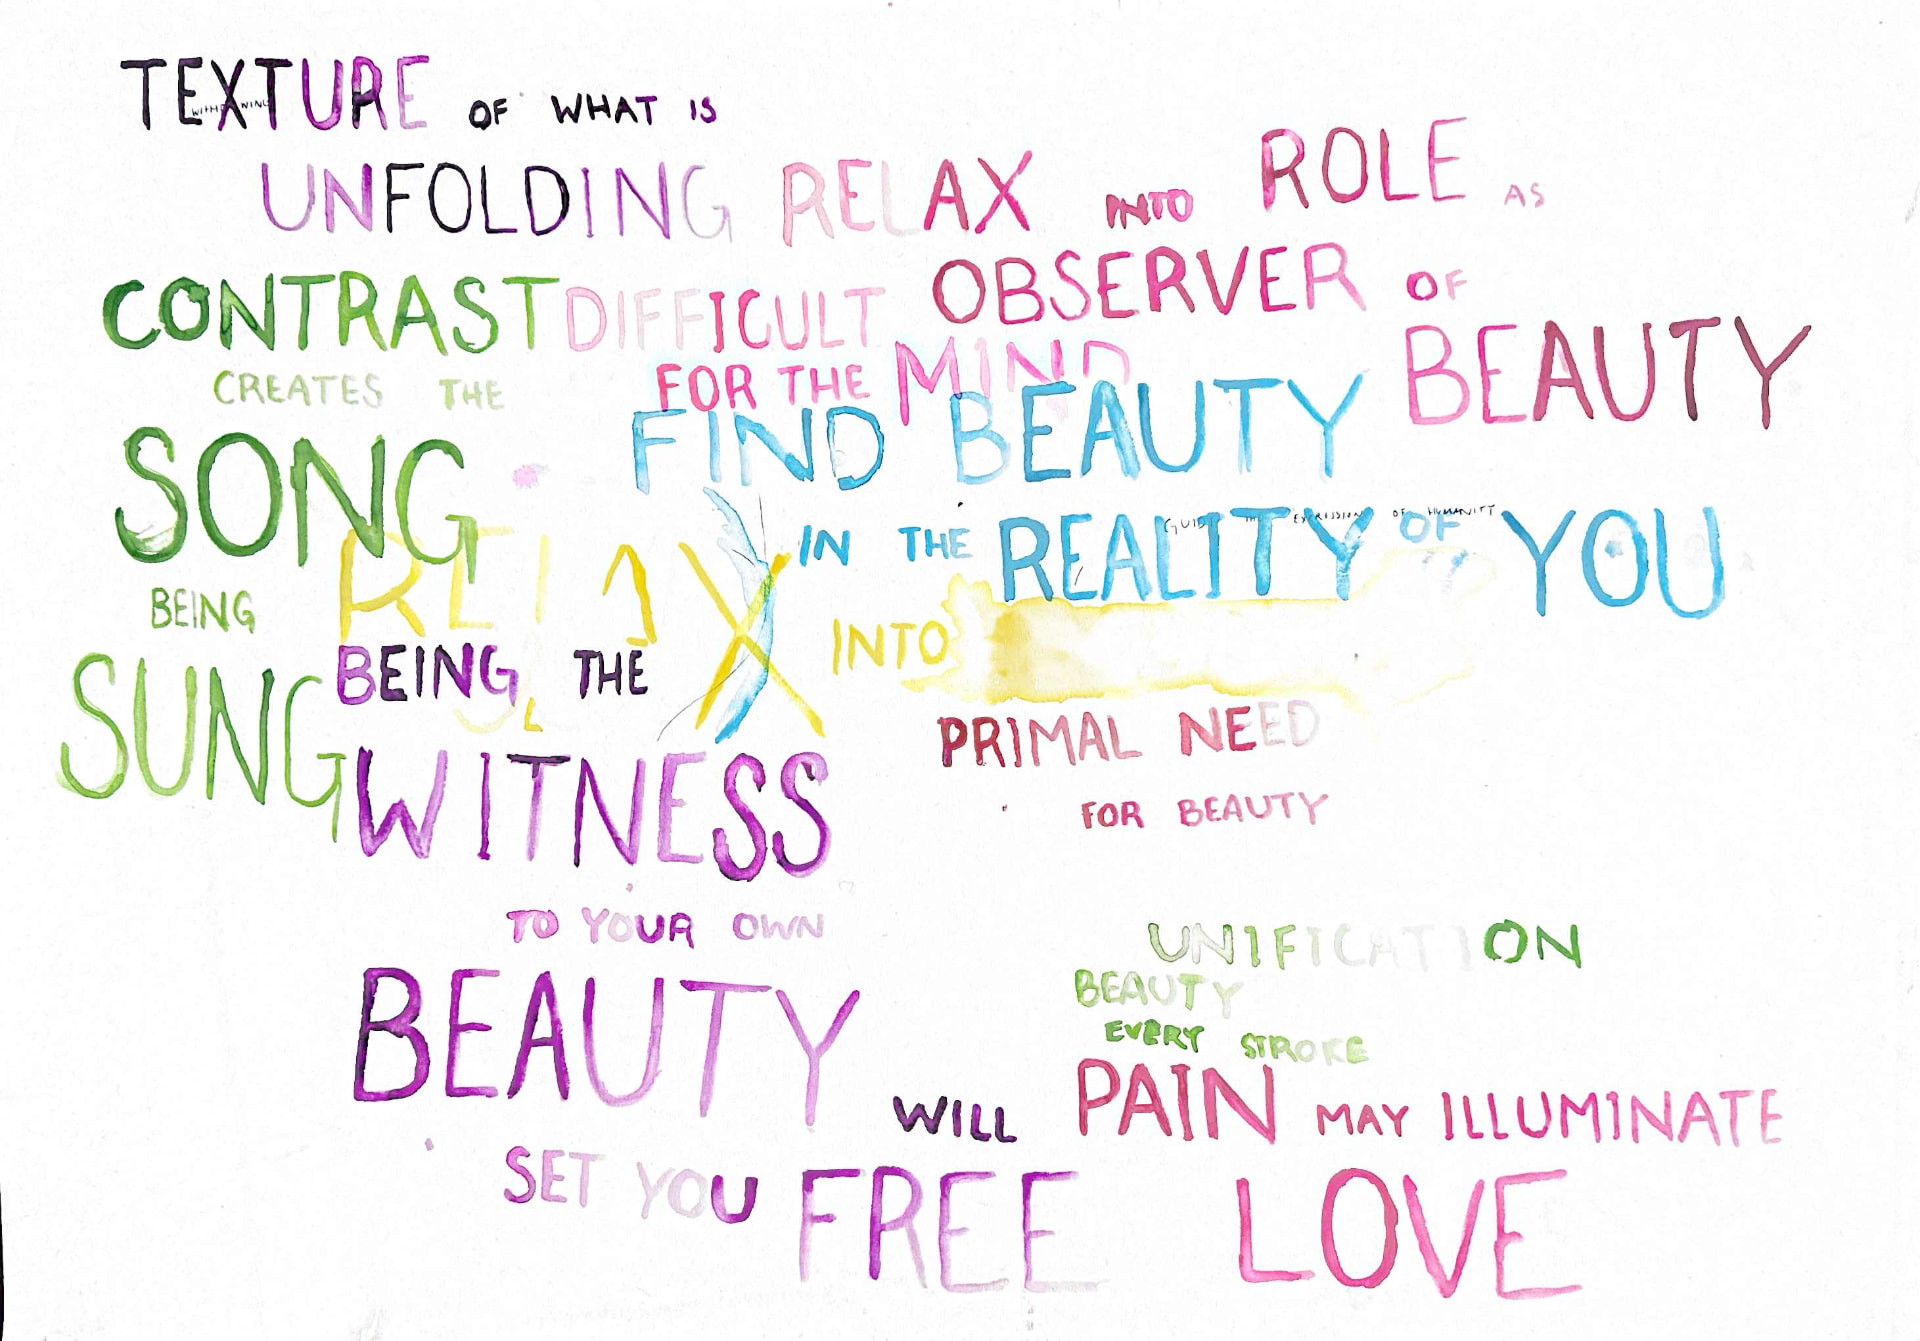 TEXTURE OF WHAT IS
UNFOLDING
RELAX INTO ROLE AS
OBSERVER OF
BEAUTY
CONTRAST
CREATES THE
SONG
BEING
SUNG
DIFFICULT
FOR THE MIND
FIND BEAUTY
IN THE REALITY OF YOU
EXPRESSION OF HUMANITY
RELAX INTO
BEING THE
WITNESS
TO YOUR OWN
BEAUTY WILL
SET YOU FREE
PRIMAL NEED
FOR BEAUTY
UNIFICATION
BEAUTY
EVERY STROKE
PAIN MAY ILLUMINATE
LOVE